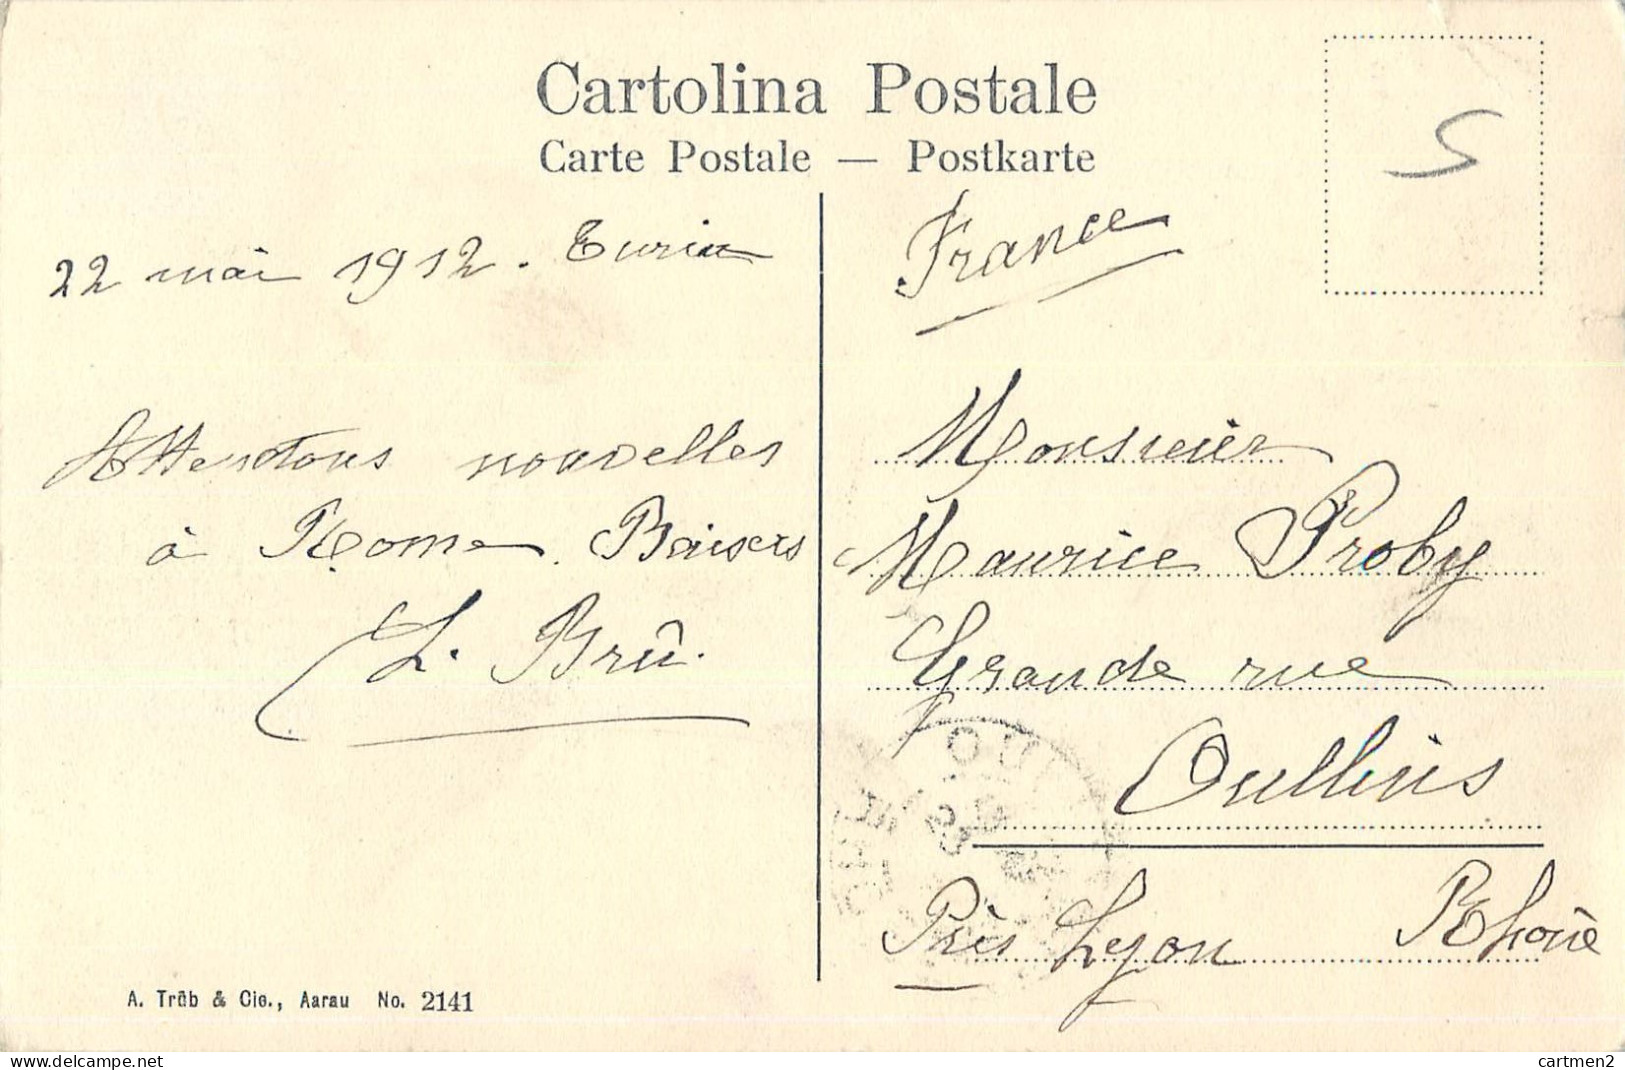 Cartolina Postale
Carte Postale — Postkarte
22 mai 1912. Turin
Attendons nouvelles
à Rome. Baisers
L. Brû.
France
S
Monsieur
Maurice Proby
Grande rue
Oullins
Près Lyon Rhône
A. Trüb & Cie., Aarau No. 2141
https://www.delcampe.net
cartmen2